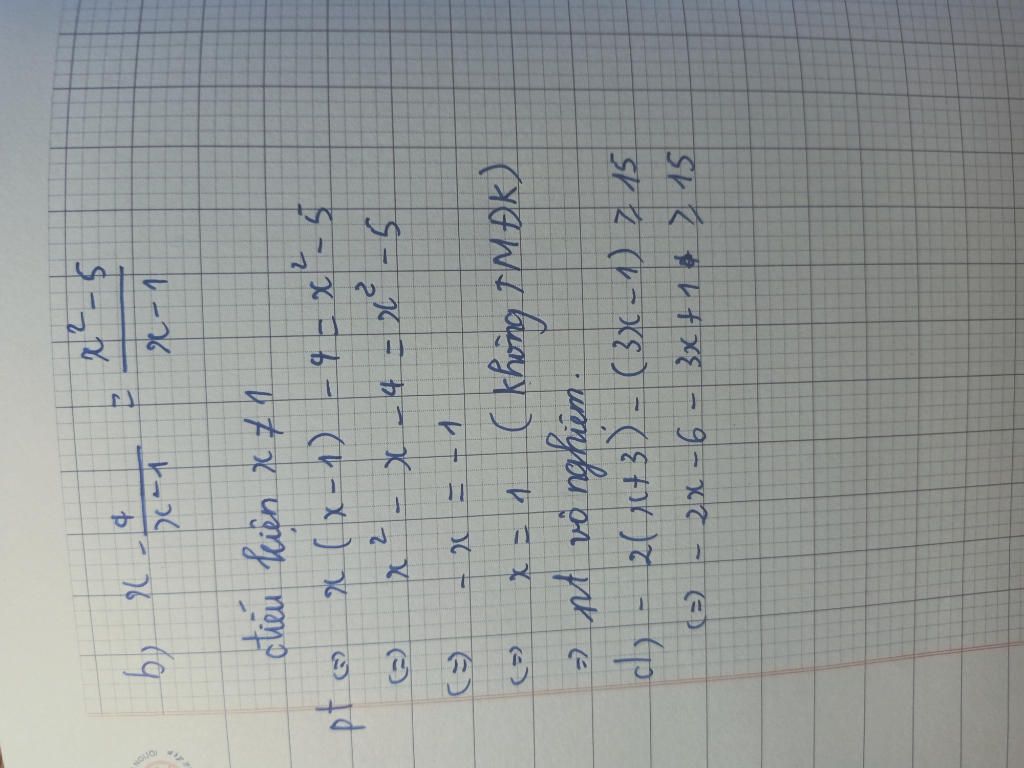 b) x - 4/(x-1) = (x² - 5)/(x - 1)
điều kiện x ≠ 1
pt (=) x(x-1) - 4 = x² - 5
(=) x² - x - 4 = x² - 5
(=) - x = -1
(=) x = 1 (không TMĐK)
=) pt vô nghiệm.
d) - 2(x+3) - (3x-1) ≥ 15
(=) - 2x - 6 - 3x + 1 ≥ 15